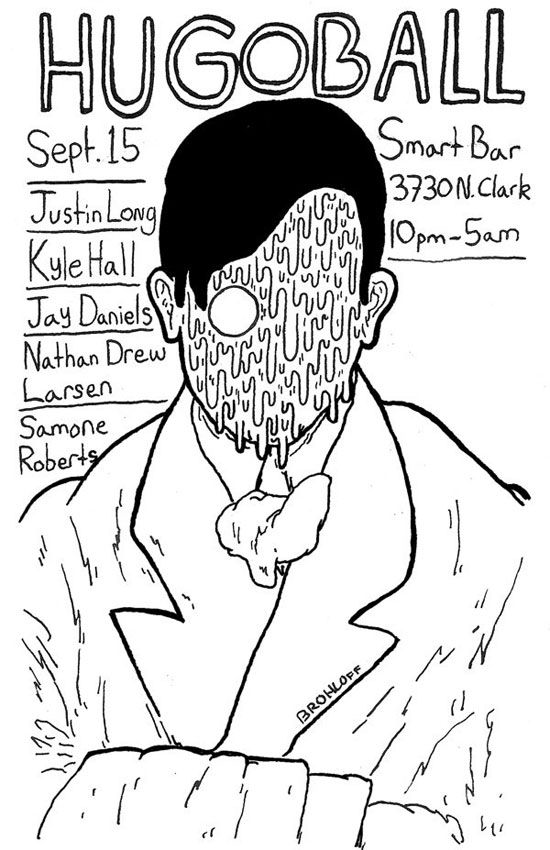 HUGOBALL
Sept. 15
Justin Long
Kyle Hall
Jay Daniels
Nathan Drew
Larsen
Samone
Roberts
Smart Bar
3730 N. Clark
10pm-5am
BROHLOFF